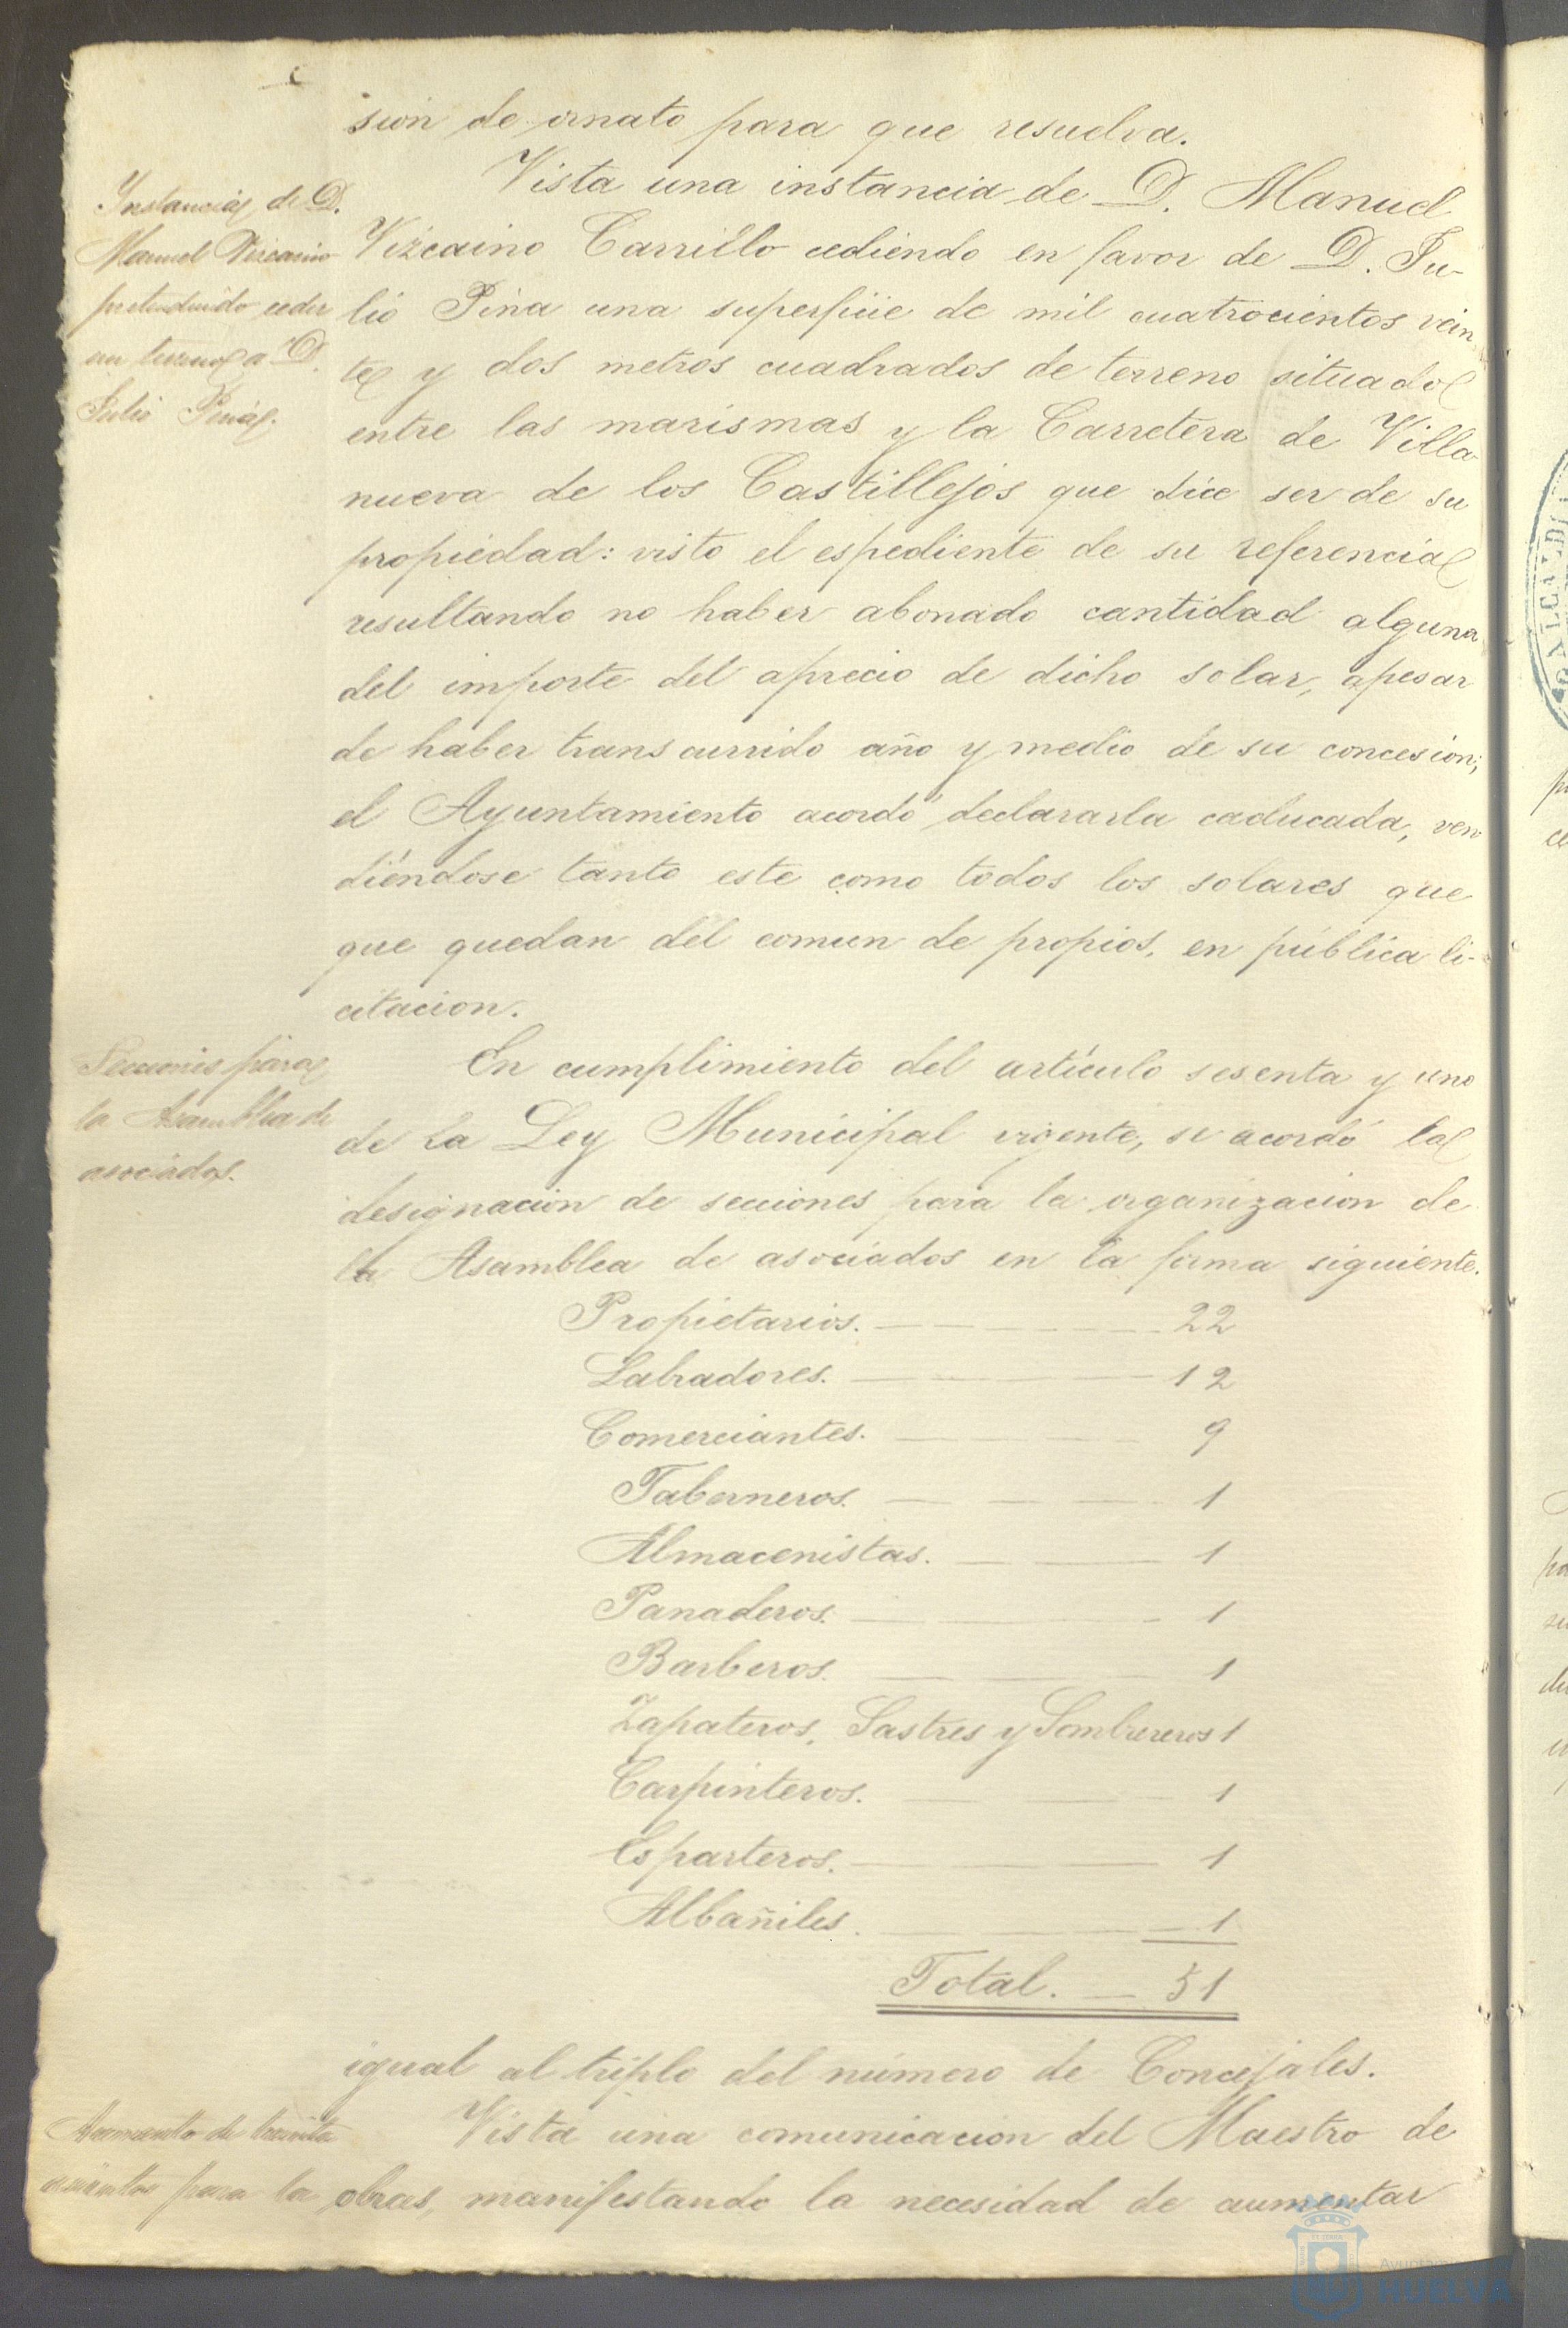 sion de ornato para que resuelva.
Instancia de D.
Manuel Vizcaino
pretendiendo ceder
un terreno a D.
Julio Pina.
Vista una instancia de D. Manuel
Vizcaino Carrillo cediendo en favor de D. Ju-
lio Pina una superficie de mil cuatrocientos vein
te y dos metros cuadrados de terreno situado
entre las marismas y la Carretera de Villa
nueva de los Castillejos que dice ser de su
propiedad: visto el espediente de su referencia
resultando no haber abonado cantidad alguna
del importe del aprecio de dicho solar, apesar
de haber transcurrido año y medio de su concesion;
el Ayuntamiento acordó declararla caducada, ven
diéndose tanto este como todos los solares que
que quedan del comun de propios, en pública li-
citacion.
Secciones para
la Asamblea de
asociados.
En cumplimiento del artículo sesenta y uno
de la Ley Municipal vigente, se acordó la
designacion de secciones para la organizacion de
la Asamblea de asociados en la forma siguiente.
Propietarios. 22
Labradores. 12
Comerciantes. 9
Taberneros. 1
Almacenistas. 1
Panaderos. 1
Barberos. 1
Zapateros, Sastres y Sombrereros 1
Carpinteros. 1
Esparteros. 1
Albañiles. 1
Total. 51
igual al triplo del número de Concejales.
Aumento de treinta
asientos para la
Vista una comunicacion del Maestro de
obras, manifestando la necesidad de aumentar
HUELVA